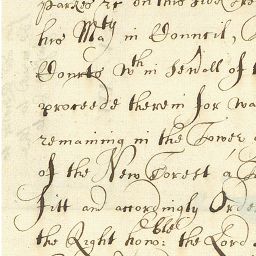 Parkes &c on this side
his Ma^ty in Councill,
Courts w^ch in severall of
proceede therein for wa
remaining in the Tower
of the New Forest a
Fitt and accordingly Orde
the Right hono^ble: the Lord